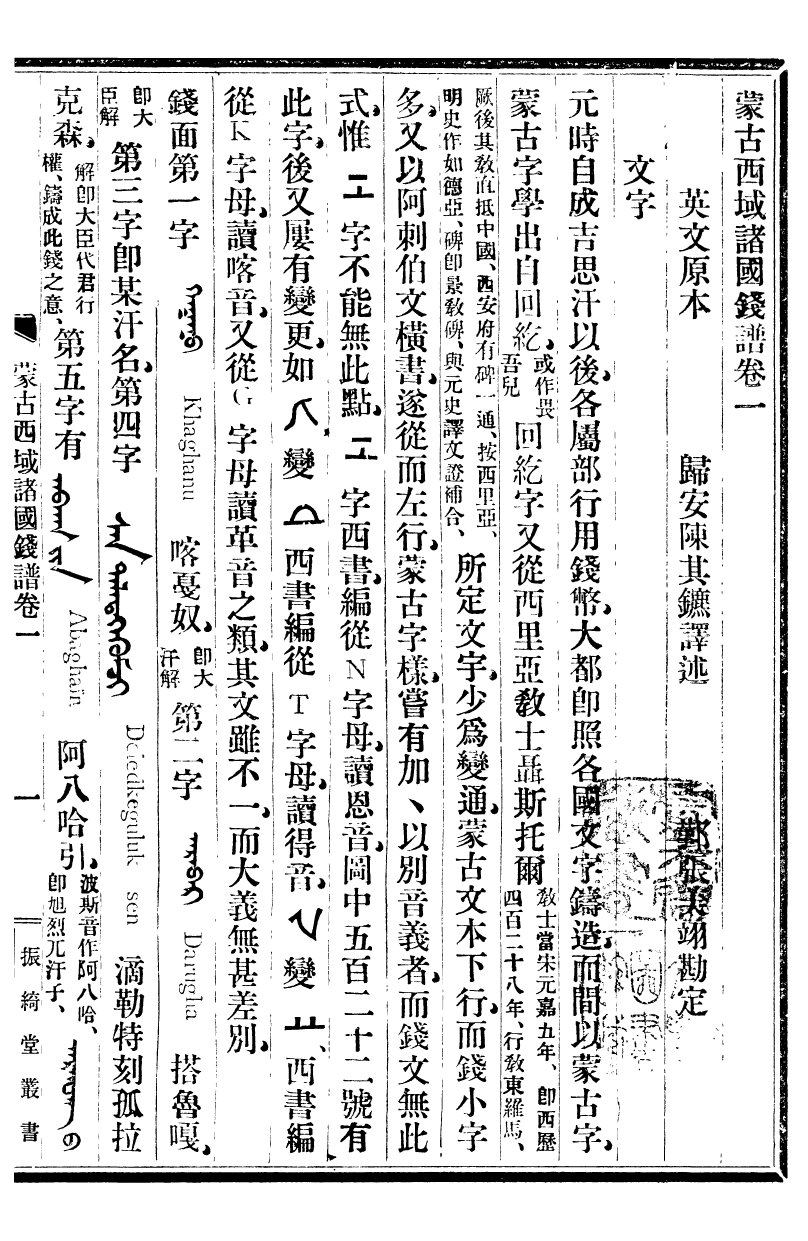 蒙古西域諸國錢譜卷一
英文原本　歸安陳其鑣譯述　鄞張美翊勘定
文字
元時自成吉思汗以後各屬部行用錢幣大都卽照各國文字鑄造而間以蒙古字
蒙古字學出自回紇或作畏吾兒回紇字又從西里亞敎士聶斯托爾敎士當宋元嘉五年、卽西歷四百二十八年、行敎東羅馬、
厥後其敎直抵中國、西安府有碑一通、按西里亞、明史作如德亞、碑卽景敎碑、與元史譯文證補合、所定文字少爲變通蒙古文本下行而錢小字
多又以阿剌伯文橫書遂從而左行蒙古字樣嘗有加、以別音義者而錢文無此
式惟字不能無此點字西書編從N字母讀恩音圖中五百二十二號有
此字後又屢有變更如變西書編從T字母讀得音變西書編
從K字母讀喀音又從G字母讀革音之類其文雖不一而大義無甚差別
錢面第一字 Khaghanu 喀戞奴卽大汗解第二字 Darugha 搭魯嘎
卽大臣解第三字卽某汗名第四字 Deledkeguluk sen 滴勒特刻孤拉
克森解卽大臣代君行權、鑄成此錢之意、第五字有 Abaghain 阿八哈引波斯音作阿八哈、卽旭烈兀汗子、
蒙古西域諸國錢譜卷一
一
振綺堂叢書